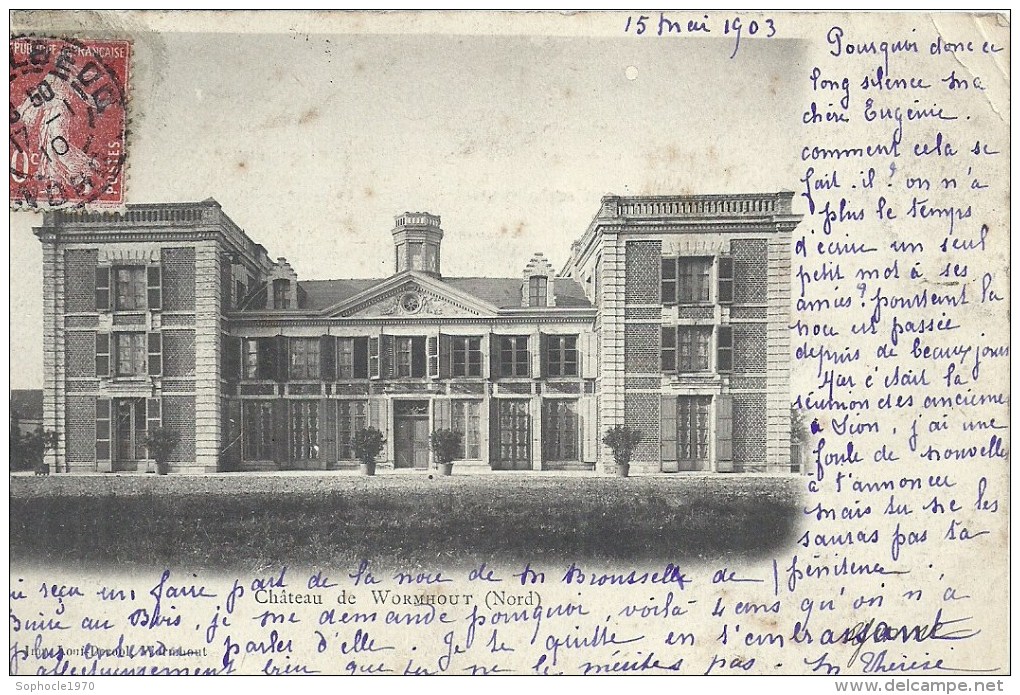 15 Mai 1903
RÉPUBLIQUE FRANÇAISE
POSTES
Pourquoi donc ce
long silence ma
chère Eugénie.
comment cela se
fait-il? on n'a
plus le temps
d'écrire un seul
petit mot à ses
amies? pourtant la
nou est passée
depuis de beaux jours
Mar c'était la
réunion des anciennes
à Sion, j'ai une
foule de nouvelle
à t'annoncer
mais tu ne les
sauras pas ta
pénitence.
reçu un faire part de la nou de M Brousselle de
au Bois, je me demande pourquoi, voilà 4 ans qu'on n'a
Château de WORMHOUT (Nord)
plus parler d'elle. Je te quitte en t'embrassant
affectueusement bien que tu ne le mérites pas. M Thérèse
Sophocle1970
www.delcampe.net